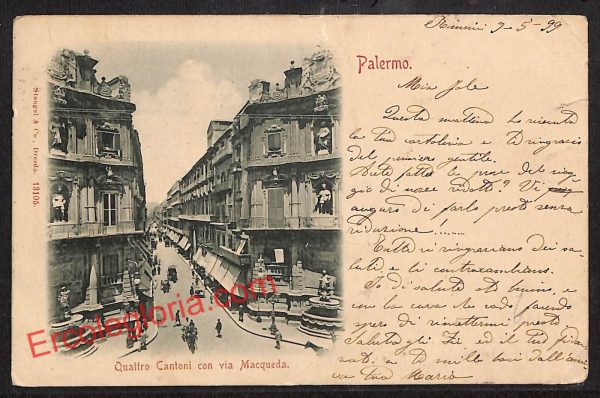 Rimini 9-5-99
Palermo.
Mia Jole
Questa mattina ho ricevuto
la tua cartolina e ti ringrazio
del pensiero gentile.
Avete fatto le prove del viag
gio di nozze ridotti? Vi
auguro di farlo presto senza
riduzione........
Tutti vi ringraziano dei sa
luti, e li contraccambiano.
Io di salute sto benino, e
con la cura che vado facendo
spero di rimettermi presto
Saluta gli Zii ed il tuo
e a te mille baci dall'ami
ca tua Maria
Stengel & Co., Dresda. 13105.
Quattro Cantoni con via Macqueda.
Ercolegloria.com